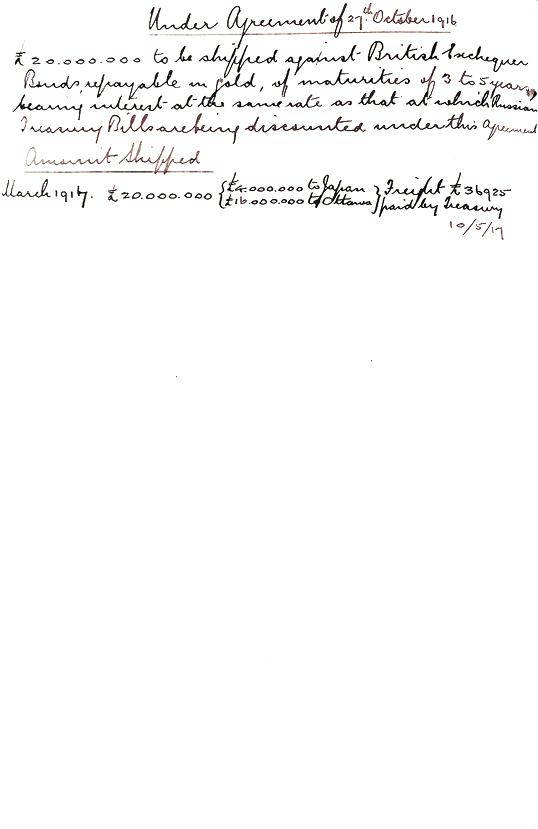 Under Agreement of 27th October 1916
£20.000.000 to be shipped against British Exchequer
Bonds, repayable in gold, of maturities of 3 to 5 years,
bearing interest at the same rate as that at which Russian
Treasury Bills are being discounted under this Agreement
Amount Shipped
March 1917. £20.000.000 { £4.000.000 to Japan } Freight £36925
£16.000.000 to Ottawa } paid by Treasury
10/5/17